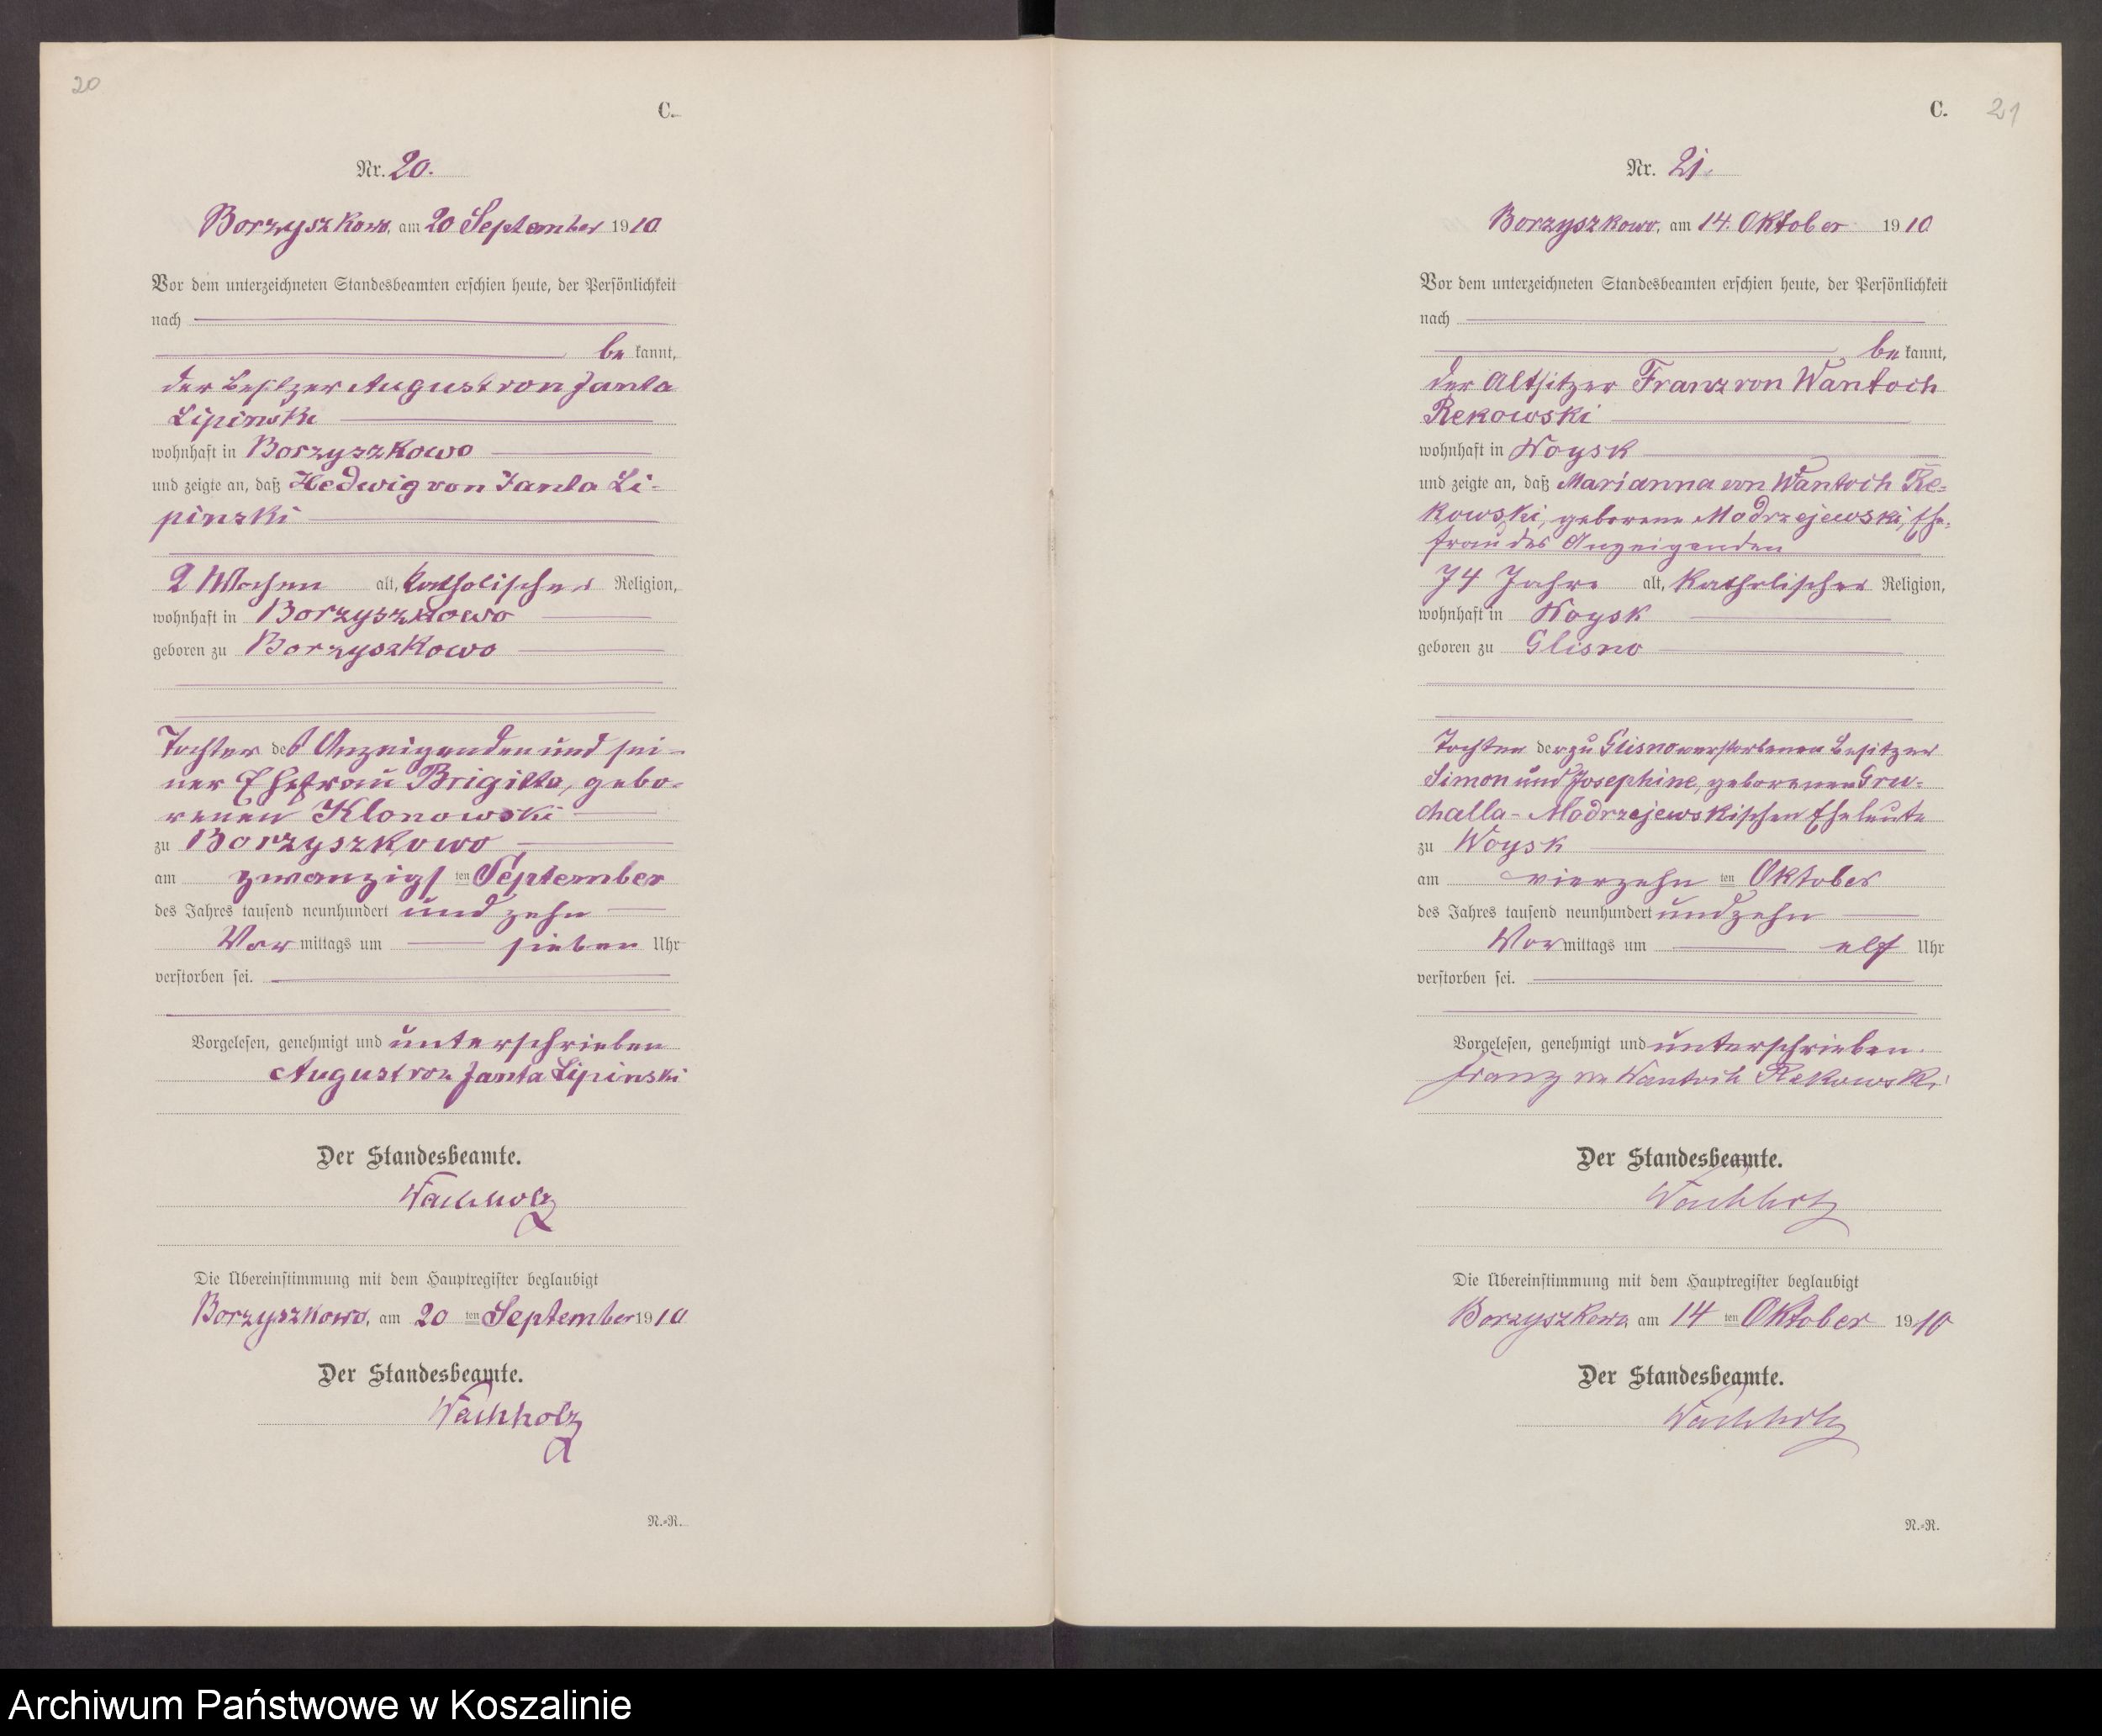 20
C.
Nr. 20.
Borzyszkowo, am 20 September 1910
Vor dem unterzeichneten Standesbeamten erschien heute, der Persönlichkeit
nach
be kannt,
der Besitzer August von Janta
Lipinski
wohnhaft in Borzyszkowo
und zeigte an, daß Hedwig von Janta Li-
pinski
2 Wochen alt, katholischer Religion,
wohnhaft in Borzyszkowo
geboren zu Borzyszkowo
Tochter des Anzeigenden und sei-
ner Ehefrau Brigitta, gebo-
renen Klonowski
zu Borzyszkowo
am zwanzigsten September
des Jahres tausend neunhundert und zehn
Vor mittags um sieben Uhr
verstorben sei.
Vorgelesen, genehmigt und unterschrieben
August von Janta Lipinski
Der Standesbeamte.
Wachholz
Die Übereinstimmung mit dem Hauptregister beglaubigt
Borzyszkowo, am 20 ten September 1910
Der Standesbeamte.
Wachholz
N.-R.
C. 21
Nr. 21.
Borzyszkowo, am 14. Oktober 1910
Vor dem unterzeichneten Standesbeamten erschien heute, der Persönlichkeit
nach
be kannt,
der Altsitzer Franz von Wantoch
Rekowski
wohnhaft in Woysk
und zeigte an, daß Marianna von Wantoch Re-
kowski, geborene Modrzejewski, Ehe-
frau des Anzeigenden
74 Jahre alt, katholischer Religion,
wohnhaft in Woysk
geboren zu Glisno
Tochter der zu Glisno verstorbenen Besitzer
Simon und Josephine, geborenen Gru-
challa-Modrzejewskischen Eheleute
zu Woysk
am vierzehn ten Oktober
des Jahres tausend neunhundert und zehn
Vor mittags um elf Uhr
verstorben sei.
Vorgelesen, genehmigt und unterschrieben.
Franz von Wantoch Rekowski
Der Standesbeamte.
Wachholz
Die Übereinstimmung mit dem Hauptregister beglaubigt
Borzyszkowo am 14 ten Oktober 1910
Der Standesbeamte.
Wachholz
N.-R.
Archiwum Państwowe w Koszalinie